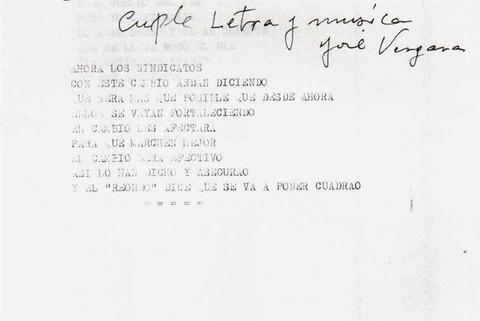 Cuple Letra y musica
José Vergara
AHORA LOS SINDICATOS
CON ESTE CAMBIO ANDAN DICIENDO
QUE SERA MAS QUE POSIBLE QUE DESDE AHORA
ELLOS SE VAYAN FORTALECIENDO
EL CAMBIO LES AFECTARA
PARA QUE MARCHEN MEJOR
EL CAMBIO SERA EFECTIVO
ASI LO HAN DICHO Y ASEGURAO
Y EL "REONDO" DICE QUE SE VA A PONER CUADRAO
=====